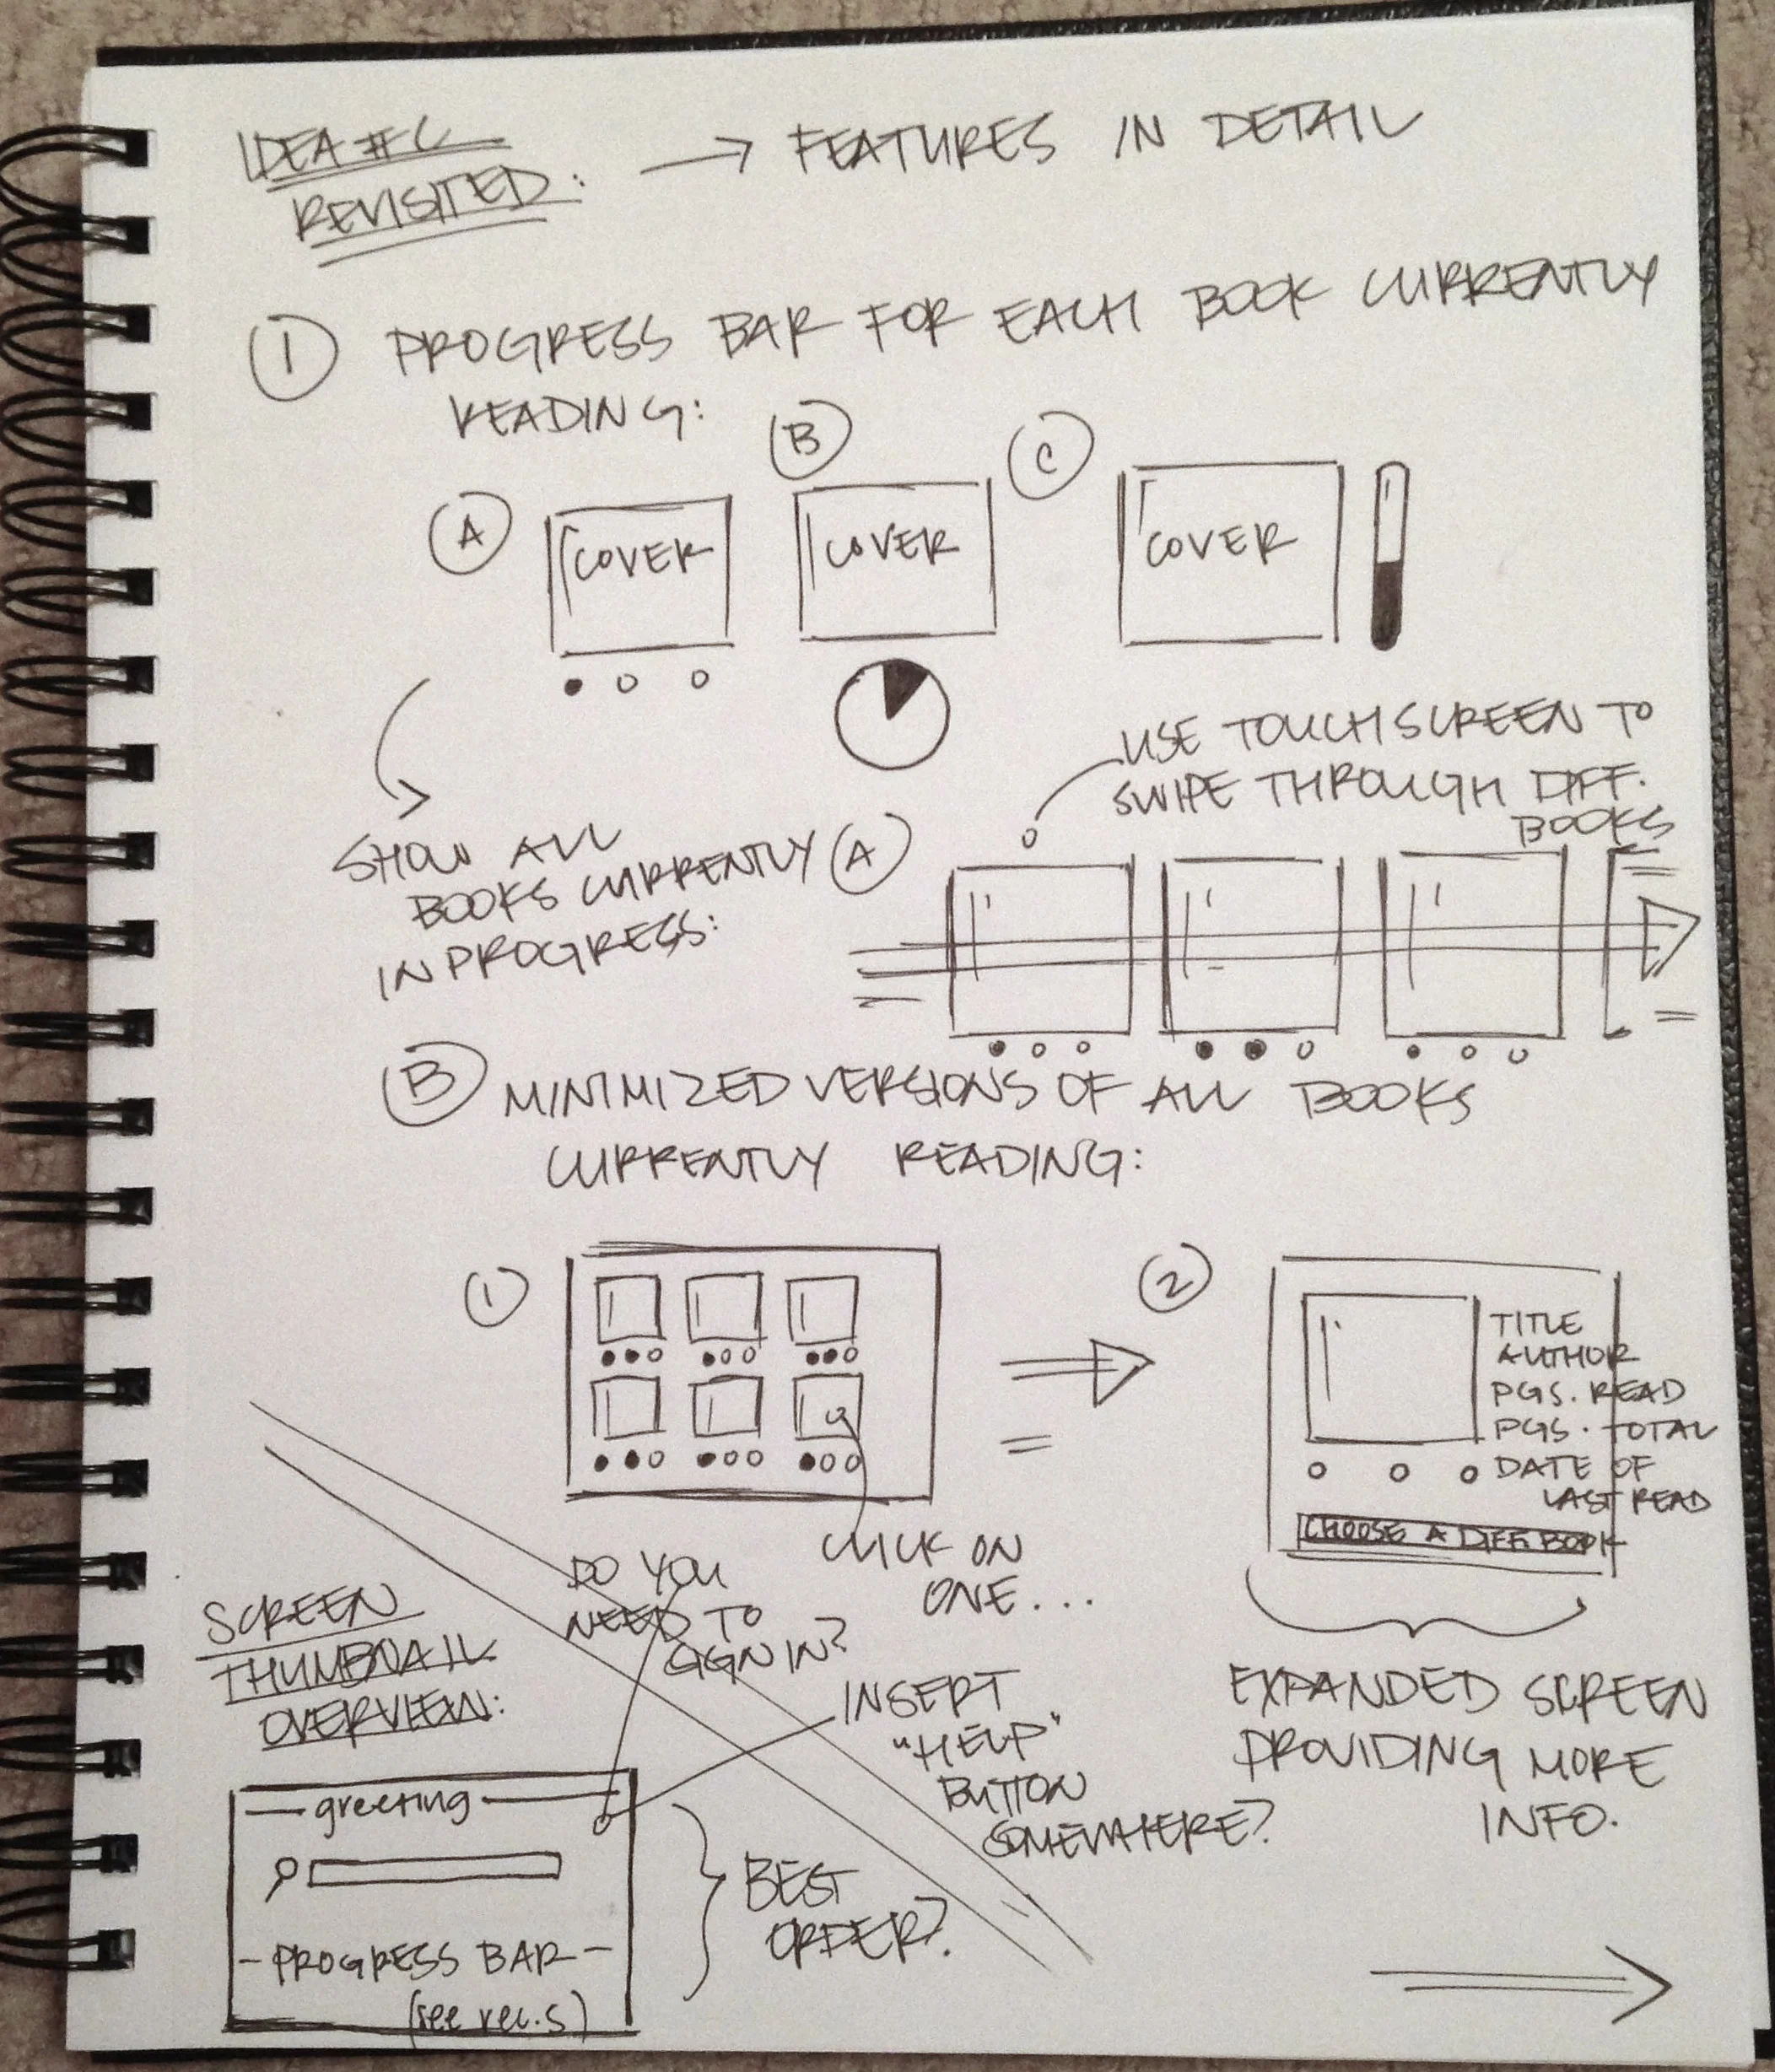 IDEA #C
REVISITED: → FEATURES IN DETAIL
① PROGRESS BAR FOR EACH BOOK CURRENTLY
READING:
Ⓐ Ⓑ Ⓒ
COVER COVER COVER
USE TOUCH SCREEN TO
SWIPE THROUGH DIFF.
BOOKS
SHOW ALL
BOOKS CURRENTLY
IN PROGRESS:
Ⓐ
Ⓑ MINIMIZED VERSIONS OF ALL BOOKS
CURRENTLY READING:
① ②
TITLE
AUTHOR
PGS. READ
PGS. TOTAL
DATE OF
LAST READ
CHOOSE A DIFF. BOOK
CLICK ON
ONE...
EXPANDED SCREEN
PROVIDING MORE
INFO.
DO YOU
NEED TO
SIGN IN?
INSERT
"HELP"
BUTTON
SOMEWHERE?
SCREEN
THUMBNAIL
OVERVIEW:
— greeting —
- PROGRESS BAR -
BEST
ORDER?